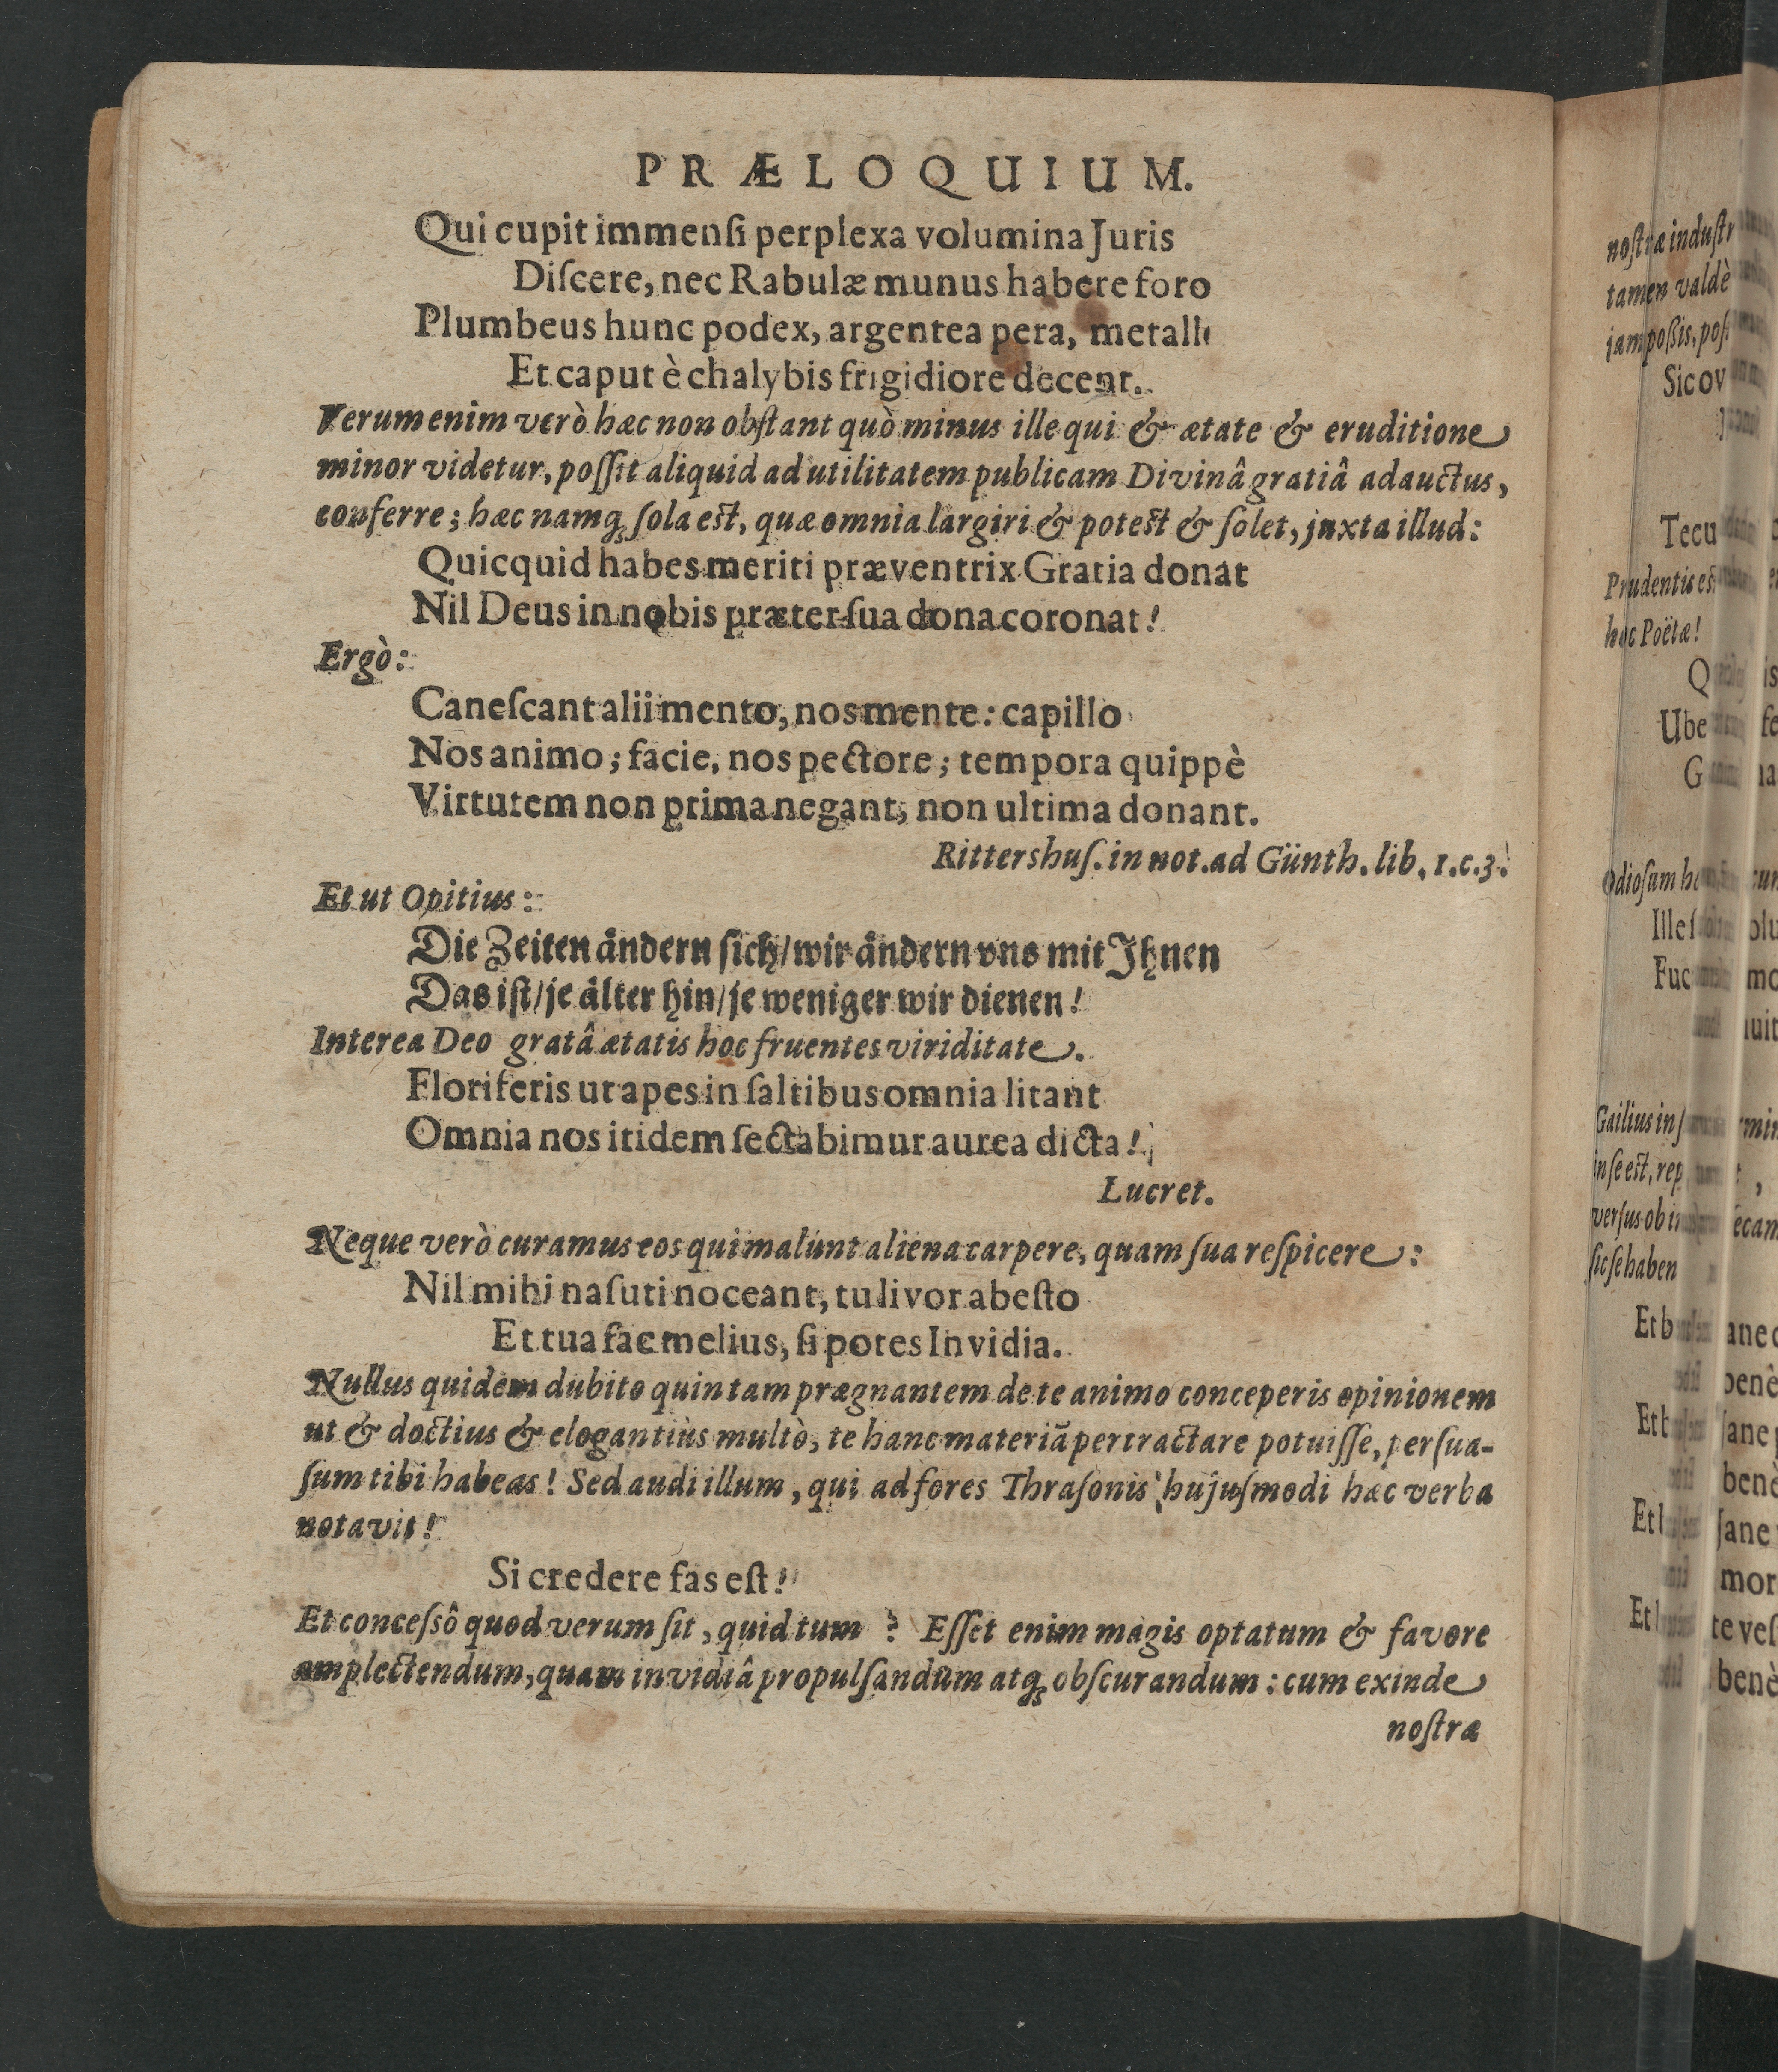 PRÆLOQUIUM.
Qui cupit immenſi perplexa volumina Juris
Diſcere, nec Rabulæ munus habere foro
Plumbeus hunc podex, argentea pera, metalli
Et caput è chalybis frigidiore decent.
Verum enim verò hæc non obſtant quò minus ille qui & ætate & eruditione
minor videtur, poſſit aliquid ad utilitatem publicam Divinâ gratiâ adauctus,
conferre; hæc namq́; ſola eſt, quæ omnia largiri & poteſt & ſolet, juxta illud:
Quicquid habes meriti præventrix Gratia donat
Nil Deus in nobis præter ſua dona coronat!
Ergò:
Caneſcant alii mento, nos mente: capillo
Nos animo; facie, nos pectore; tempora quippè
Virtutem non prima negant, non ultima donant.
Rittershuſ. in not. ad Günth. lib. 1. c. 3.
Et ut Opitius:
Die Zeiten ändern ſich/ wir ändern vns mit Ihnen
Das iſt/ je älter hin/ je weniger wir dienen!
Interea Deo gratâ ætatis hoc fruentes viriditate.
Floriferis ut apes in ſaltibus omnia litant
Omnia nos itidem ſectabimur aurea dicta!
Lucret.
Neque verò curamus eos qui malunt aliena carpere, quam ſua reſpicere:
Nil mihi naſuti noceant, tu livor abeſto
Et tua fac melius, ſi potes Invidia.
Nullus quidem dubito quin tam prægnantem de te animo conceperis opinionem
ut & doctius & elogantiùs multò, te hanc materiã pertractare potuiſſe, perſua-
ſum tibi habeas! Sed audi illum, qui ad fores Thraſonis hujuſmodi hæc verba
notavit!
Si credere fas eſt!
Et conceſsô quod verum ſit, quid tum? Eſſet enim magis optatum & favore
amplectendum, quam invidiâ propulſandum atq́; obſcurandum: cum exinde
noſtræ
noſtræ induſtr
tamen valdè
jam poßis, poſ
Sic ov
Tecu
Prudentis eſt
hoc Poëtæ!
Q is
Ube fe
G na
Odioſum h
Ille ſ olu
Fuc mo
luit
Gailius in ſ rmin
in ſe eſt, rep
verſus ob i ecam
ſic ſe haben
Et b ane
benè
Et b ſane
benè
Et ſane
mor
Et te veſ
benè